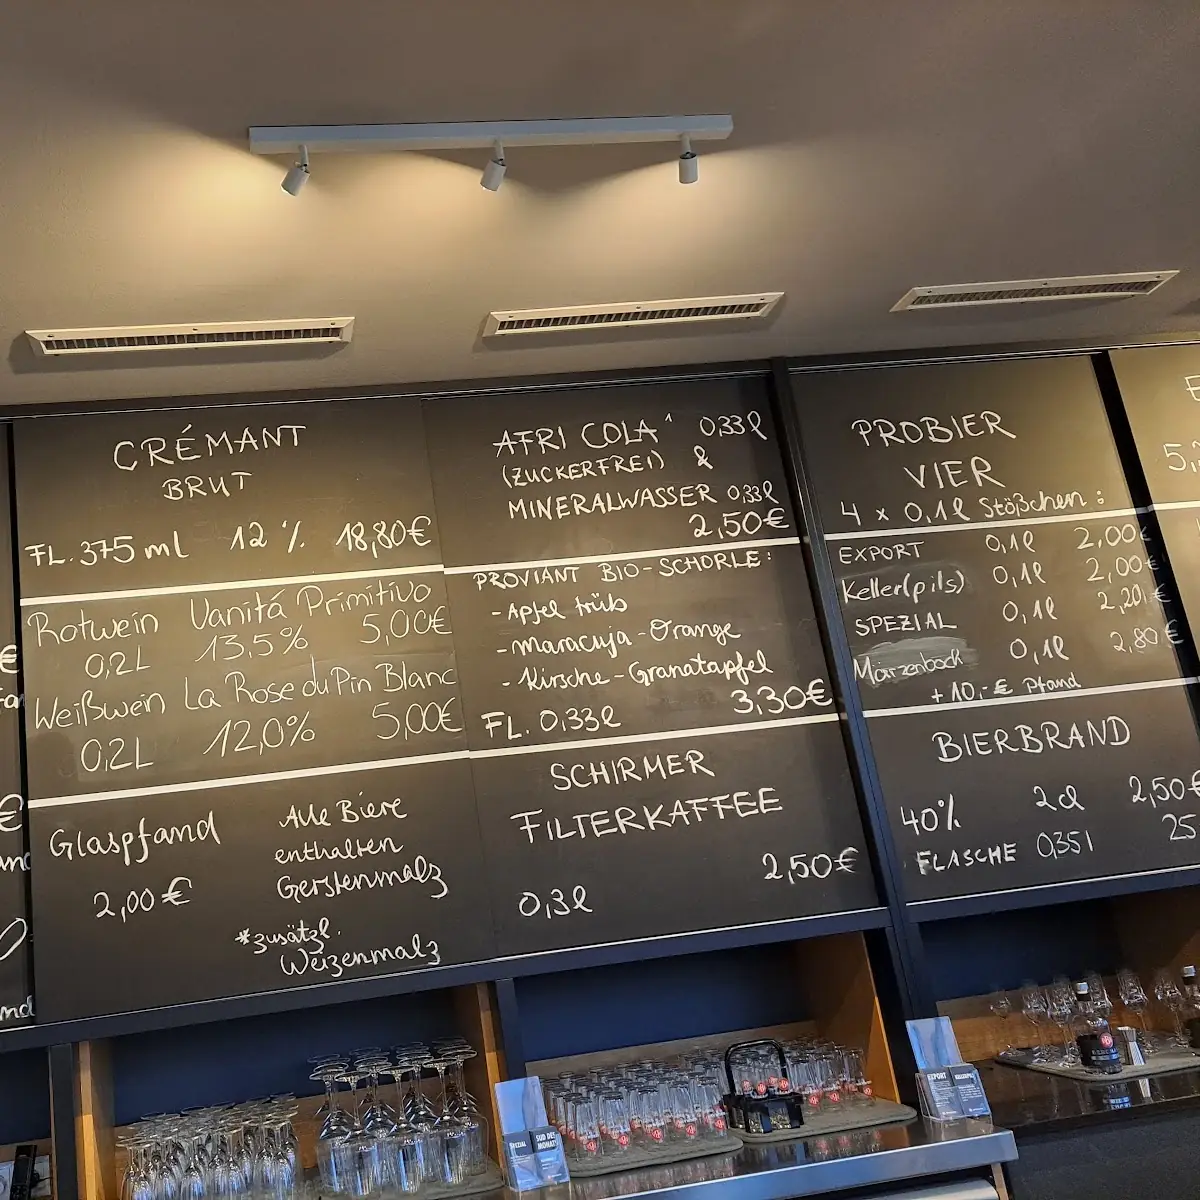 CRÉMANT
BRUT
FL. 375 ml 12 % 18,80€
Rotwein Vanitá Primitivo
0,2L 13,5% 5,00€
Weißwein La Rose du Pin Blanc
0,2L 12,0% 5,00€
Glaspfand
2,00€
Alle Biere
enthalten
Gerstenmalz
*zusätzl.
Weizenmalz
AFRI COLA¹ 0,33l
(ZUCKERFREI) &
MINERALWASSER 0,33l
2,50€
PROVIANT BIO-SCHORLE:
- Apfel trüb
- Maracuja-Orange
- Kirsche-Granatapfel
FL. 0,33l 3,30€
SCHIRMER
FILTERKAFFEE
0,3l 2,50€
PROBIER
VIER
4 x 0,1l Stößchen:
EXPORT 0,1l 2,00€
Keller(pils) 0,1l 2,00€
SPEZIAL 0,1l 2,20€
Märzenbock 0,1l 2,80€
+10,-€ Pfand
BIERBRAND
40% 2cl 2,50€
FLASCHE 0,35l 25
€
€
SPEZIAL
SUD DES
MONATS
EXPORT